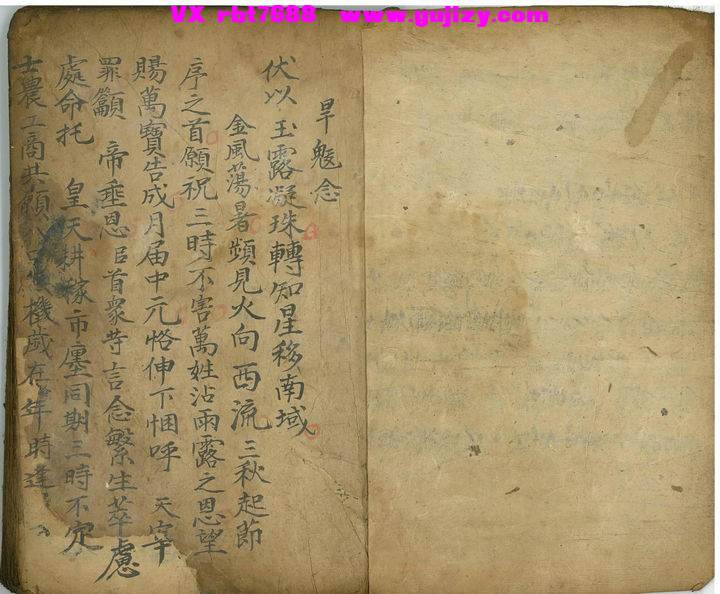 VX rbt7698 www.gujizy.com
旱魃念
伏以玉露凝珠轉知星移南域
金風蕩暑頻見火向西流三秋起節
序之首願祝三時不害萬姓沾雨露之恩望
賜萬寶告成月届中元恪伸下悃呼 天宰
罪籲 帝垂恩臣首衆等言念繁生萃慮
處命托 皇天耕稼市廛同期三時不定
士農工商共願 機歲在年時逢